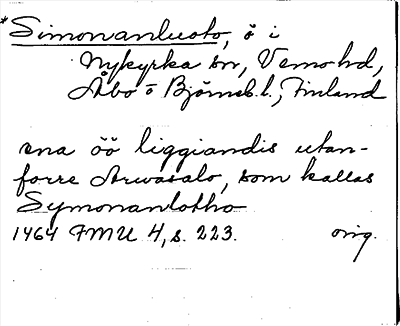 *Simonanluoto, ö i
Nykyrka sn, Vemo hd,
Åbo o Björneb. l., Finland
ena öö liggiandis utan-
forre Arwasalo, som kallas
Symonanlotho
1464 FMU 4, s. 223. orig.